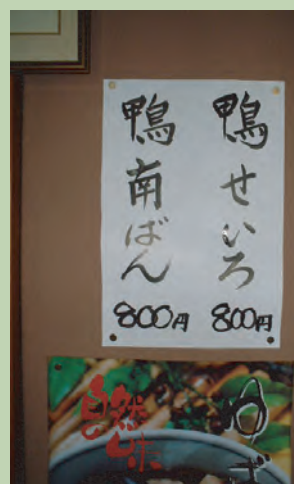 鴨せいろ
800円
鴨南ばん
800円
自然味
ゆず